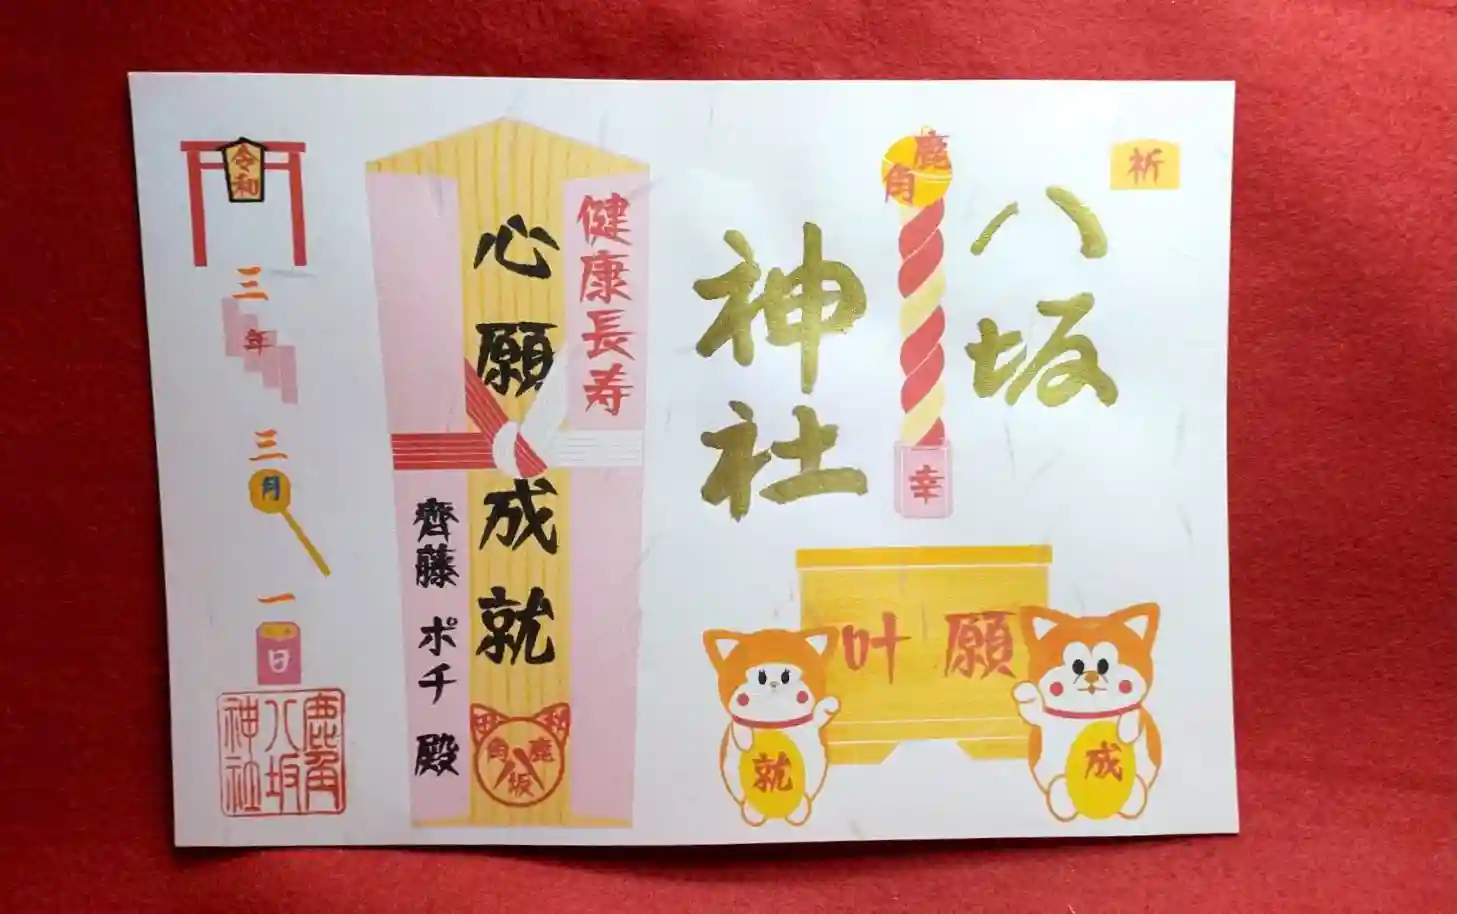 祈
八坂
鹿角
幸
神社
願叶
成
就
健康長寿
心願成就
鹿角
八坂
齊藤 ポチ 殿
令和
三年
三月
一日
鹿角
八坂
神社